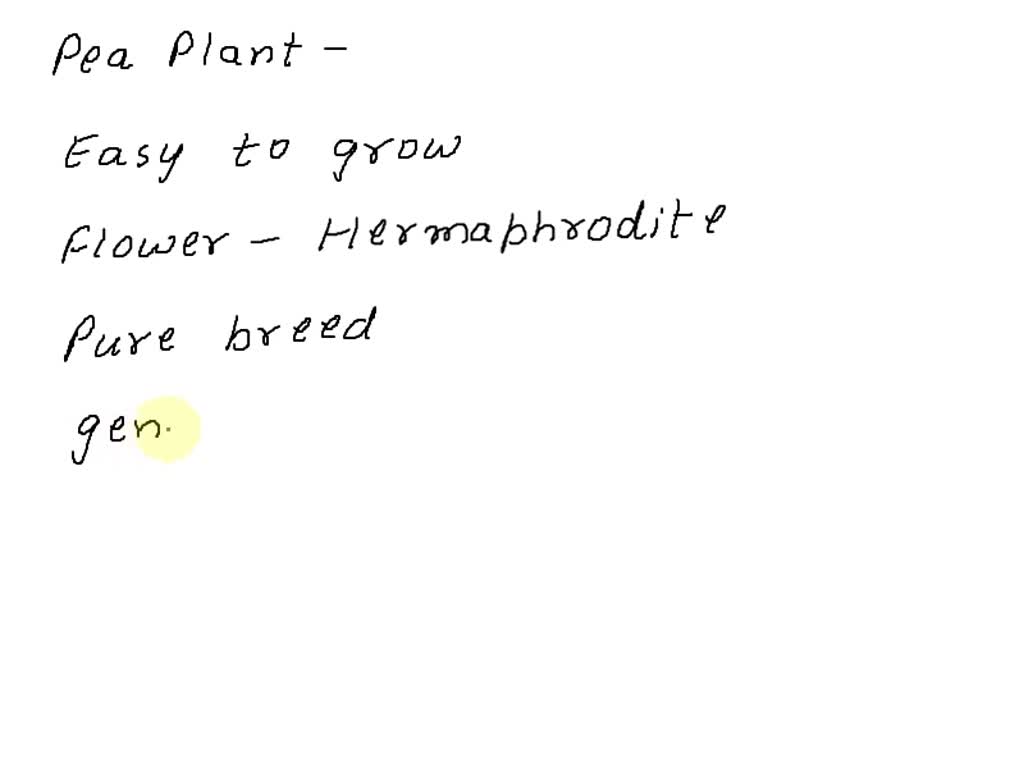 Pea Plant -
Easy to grow
Flower - Hermaphrodite
Pure breed
gen.